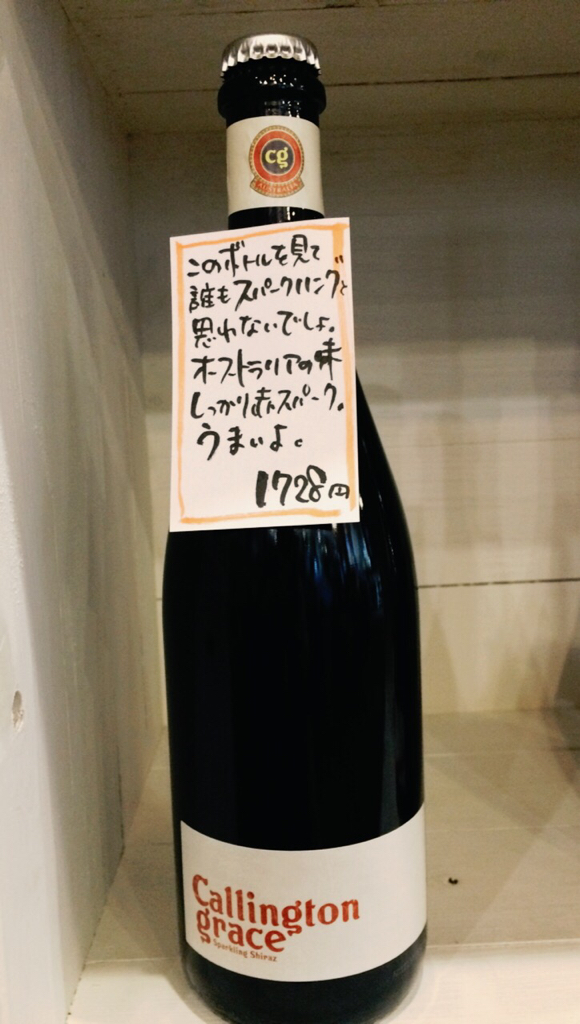 cg
このボトルを見て
誰もスパークリングと
思わないでしょ。
オーストラリアの味
しっかり赤スパーク。
うまいよ。
1728円
Callington
grace
Sparkling Shiraz